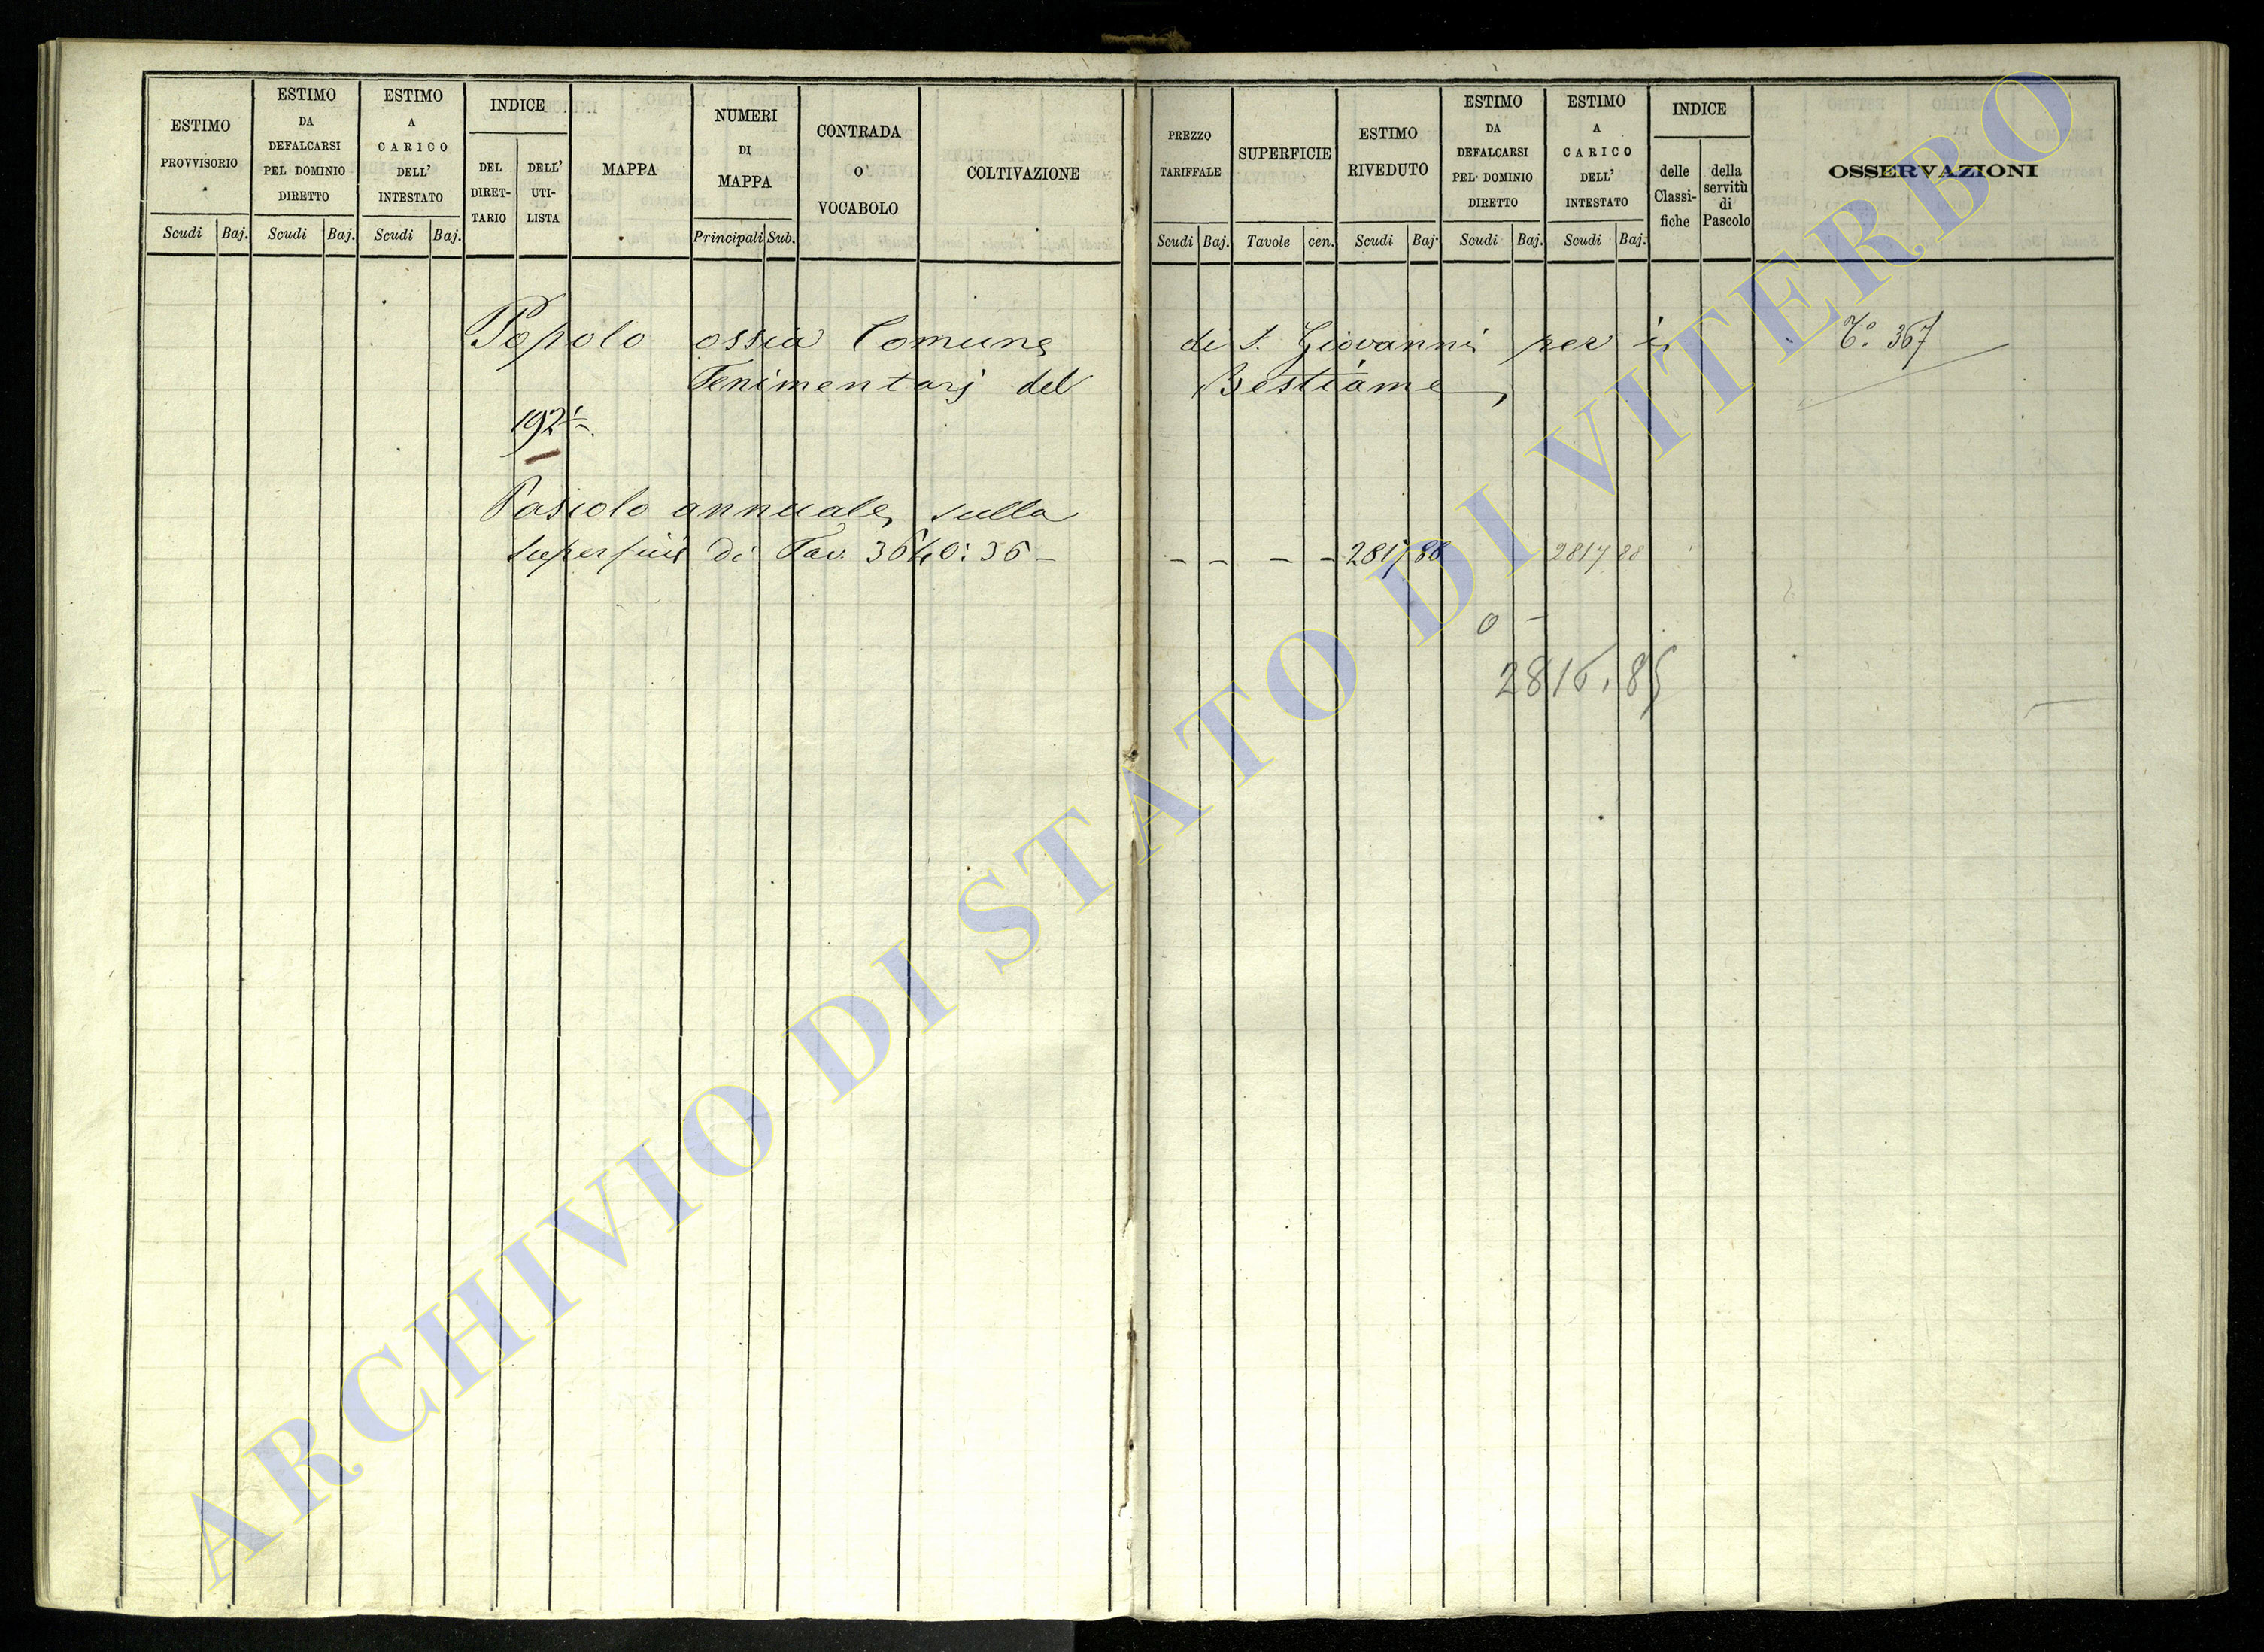 ESTIMO PROVVISORIO
ESTIMO DA DEFALCARSI PEL DOMINIO DIRETTO
ESTIMO A CARICO DELL' INTESTATO
INDICE
DEL DIRET-TARIO
DELL' UTI-LISTA
MAPPA
NUMERI DI MAPPA
CONTRADA O' VOCABOLO
COLTIVAZIONE
PREZZO TARIFFALE
SUPERFICIE
ESTIMO RIVEDUTO
ESTIMO DA DEFALCARSI PEL DOMINIO DIRETTO
ESTIMO A CARICO DELL' INTESTATO
INDICE
delle Classi-fiche
della servitù di Pascolo
OSSERVAZIONI
Scudi Baj. Scudi Baj. Scudi Baj. Principali Sub. Scudi Baj. Tavole cen. Scudi Baj. Scudi Baj. Scudi Baj.
Popolo ossia Comune di S. Giovanni per i T.° 367
Tenimentarj del Bestiame
192
Pascolo annuale sulla
superficie di Tav. 3640:36 – – – – – 2817 88 2817 88
0 –
2816.85
ARCHIVIO DI STATO DI VITERBO